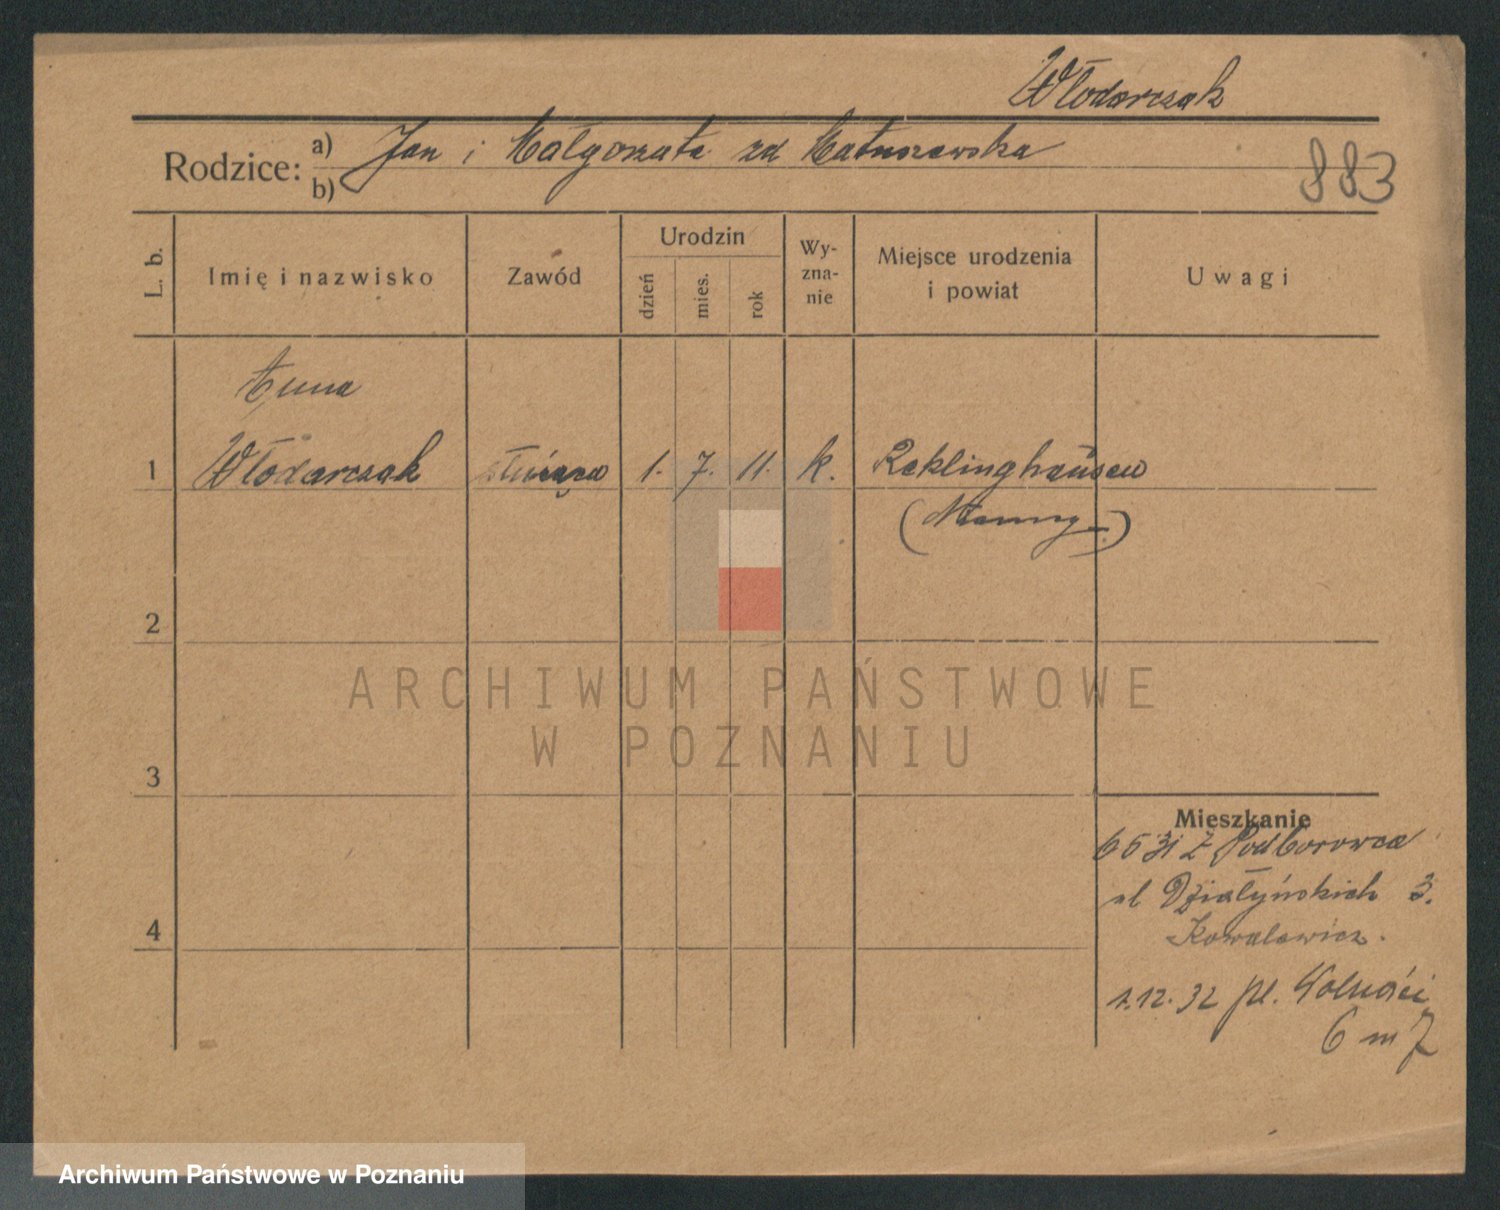 Włodarczak
Rodzice: a) Jan i Małgorzata zd Matuszewska
b)
883
L. b.
Imię i nazwisko
Zawód
Urodzin
dzień
mies.
rok
Wy-
zna-
nie
Miejsce urodzenia
i powiat
Uwagi
Anna
1 Włodarczak służąca 1. 7. 11. k. Reklinghausen
2
3
4
Mieszkanie
6 5 31 Z Podborowca
ul Działyńskich 3.
Kowalewicz.
1.12.32 pl. Wolności
6 m 7
ARCHIWUM PAŃSTWOWE
W POZNANIU
Archiwum Państwowe w Poznaniu